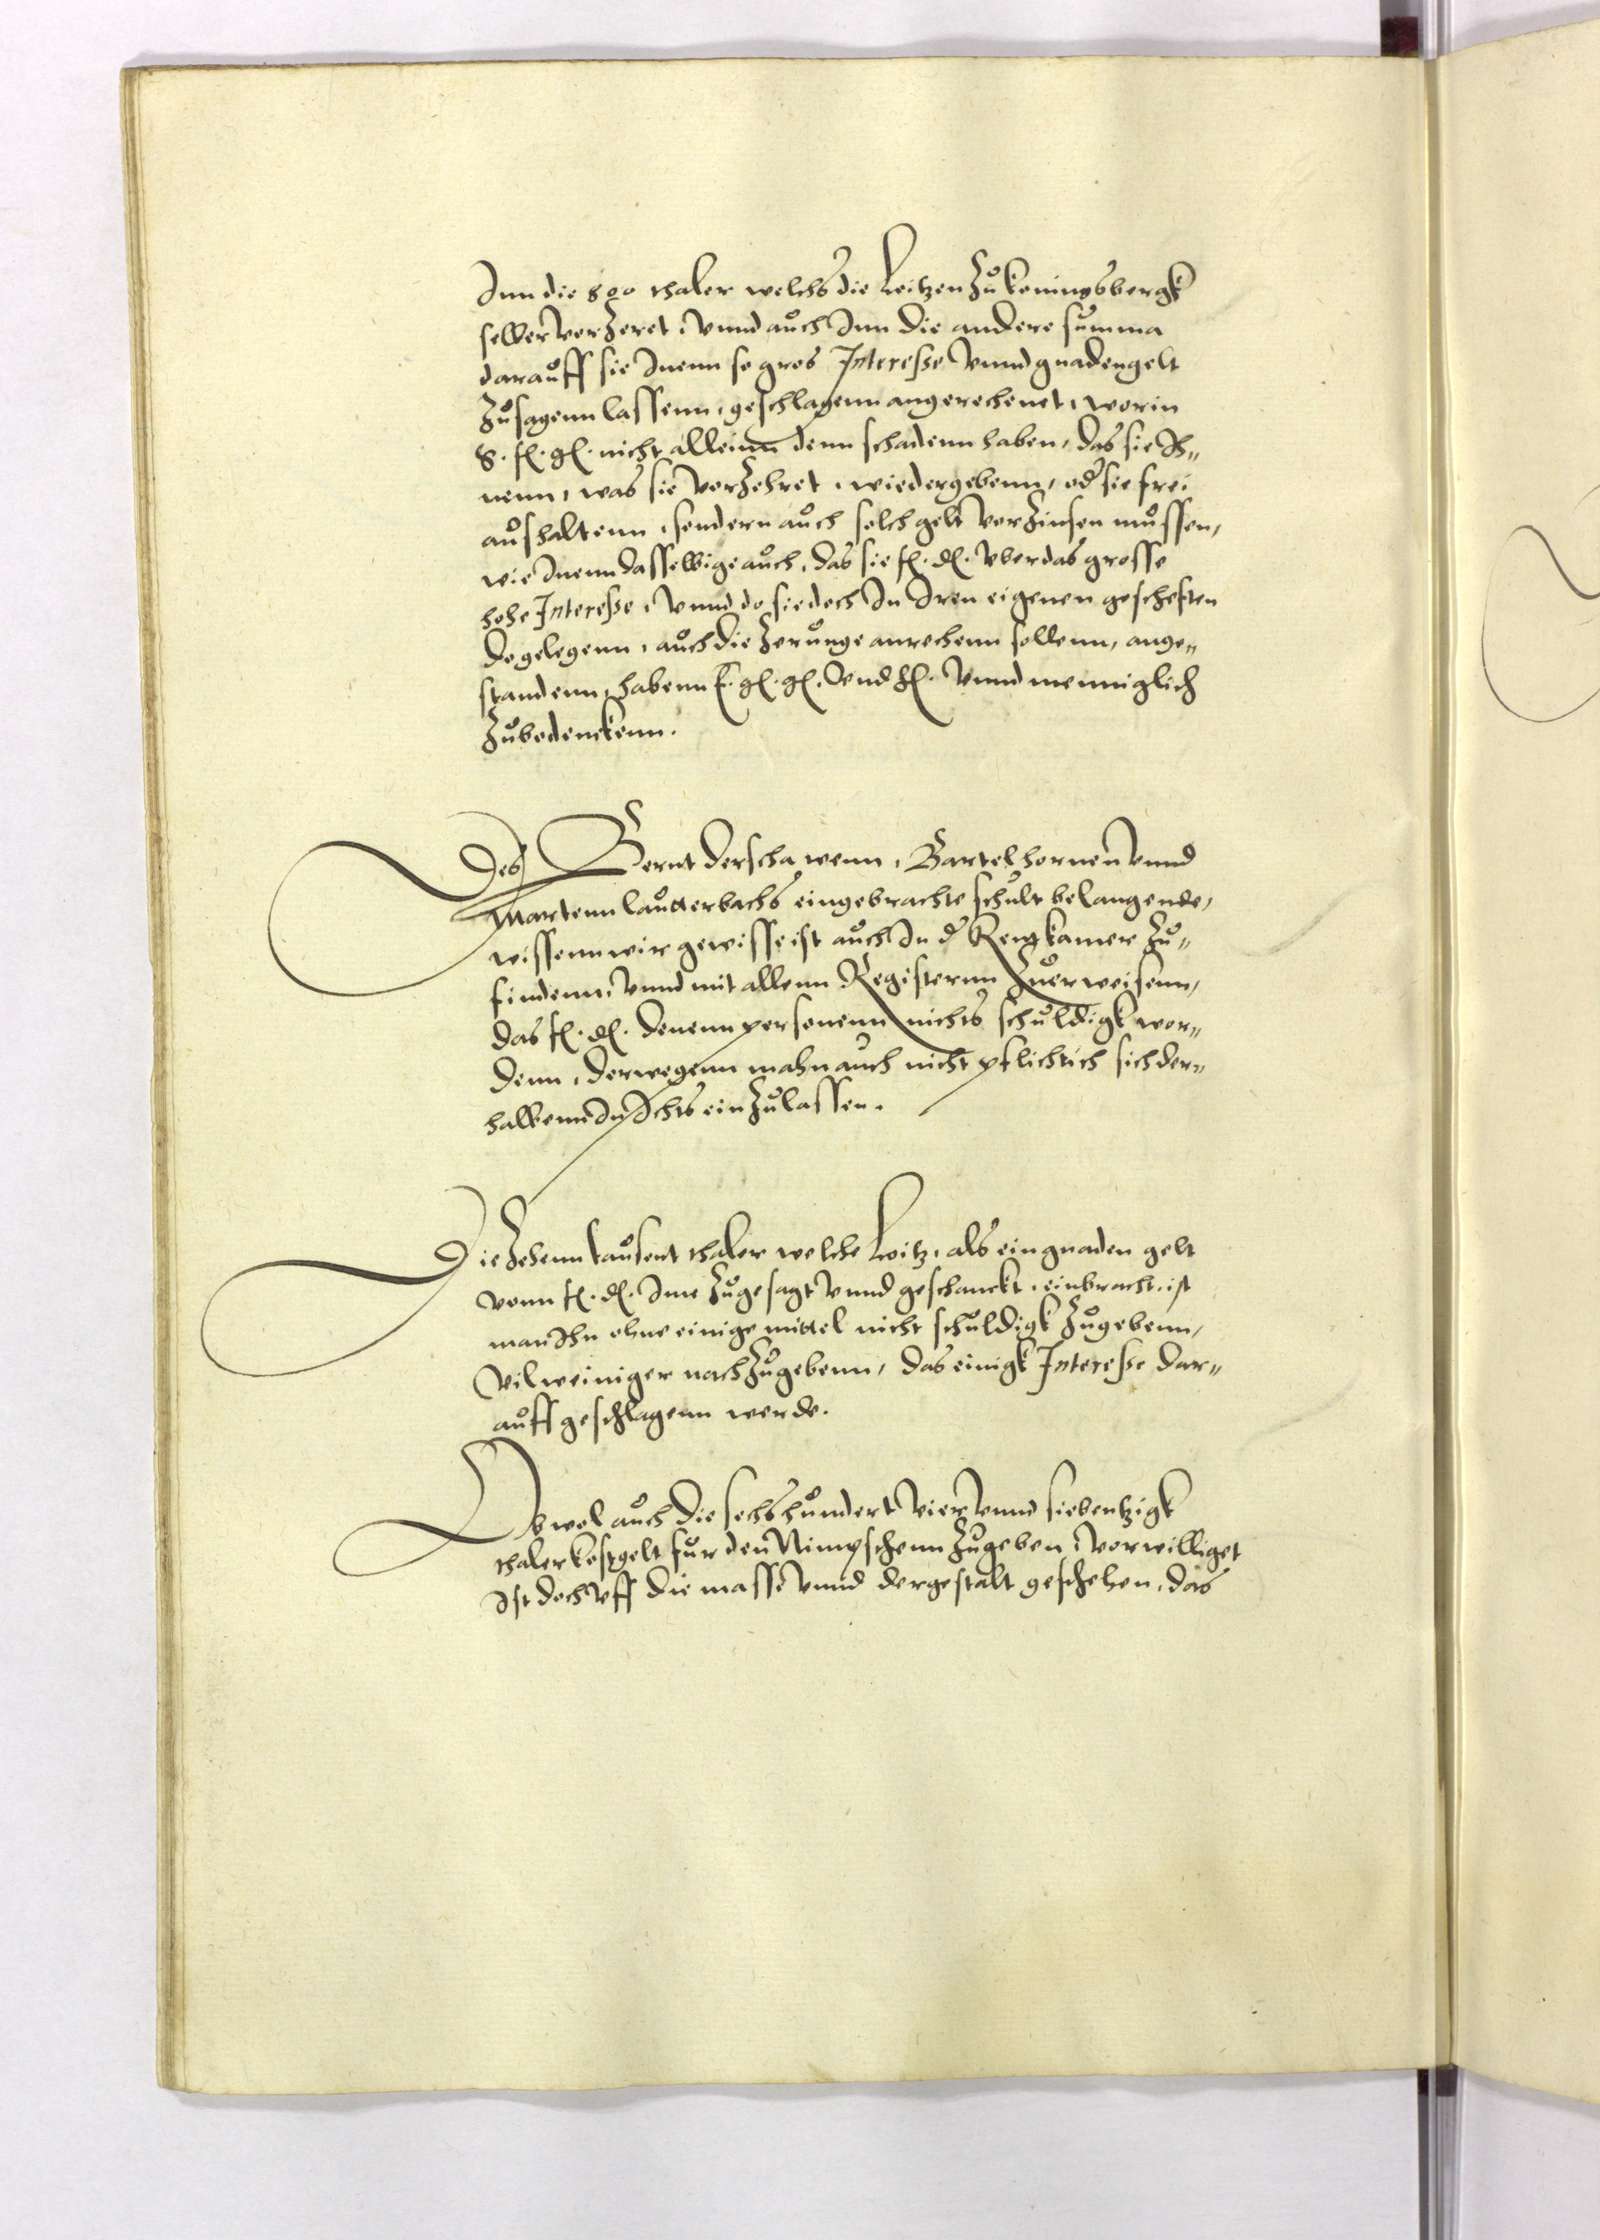 Inn die 800 thaler welchs die Loitzen zu konningsbergk
selber vorzeret, vnnd auch Inn die andere summa
darauff sie Inenn so gros Interesse vnnd gnadengelt
zusagenn lassenn, geschlagenn angerechenet, worin
S. fl. gl. nicht alleinn denn schadenn haben, das sie Ih„
nenn, was sie vorzehret, wiedergebenn, od sie frei
aushaltenn, sondern auch solch gelt vorzinsen mussen,
wie Inenn dasselbige auch, das sie fl. dl. vber das grosse
hohe Interesse, vnnd do sie doch In Iren eigenen gescheften
do gelegenn, auch die zerunge anrechenn sollenn, ange„
standenn, habenn E. gl. gl. vnd hl. vnnd menniglich
zubedenckenn.
Des Bernt derschawenn, Bartel hornen vnnd
Martenn lautterbachs eingebrachte schult belangende,
wissenn wir gewisse ist auch In d Rentkamer zu„
findenn, vnnd mit allenn Registernn zuerweisenn,
das fl. dl. denenn personenn nichts schuldigk wor„
denn, derwegenn mahn auch nicht pflichtich sich der„
halbenn In Ichts einzulassen.
Die zehenn tausent thaler welche Loitz, als ein gnaden gelt
vonn fl. dl. Ime zugesagt vnnd geschanckt, einbracht, ist
man Ihn ohne einige mittel nicht schuldigk zugebenn,
vil weiniger nachzugebenn, das einigk Interesse dar„
auff geschlagenn werde.
Ob wol auch die sechshundert vier vnnd siebentzigk
thaler kostgelt fur den Nimpschenn zugeben, vorwilliget
Ist doch vff die masse vnnd dergestalt geschehen, das